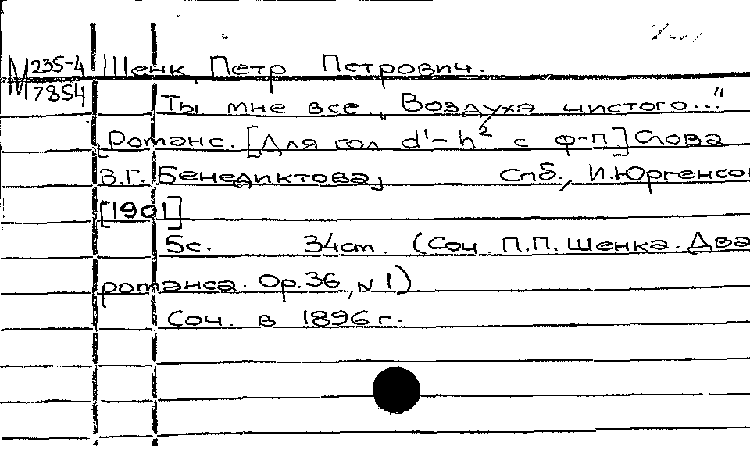 М 235-4 Шенк, Петр Петрович.
7854
Ты мне все. „Воздуха чистого..."
Романс. [Для гол d'-h² с ф-п] Слова
В.Г. Бенедиктова, Спб., И. Юргенсон
[1901]
5с. 34cm. (Соч. П.П. Шенка. Два
романса. Op. 36, N 1)
Соч. в 1896 г.